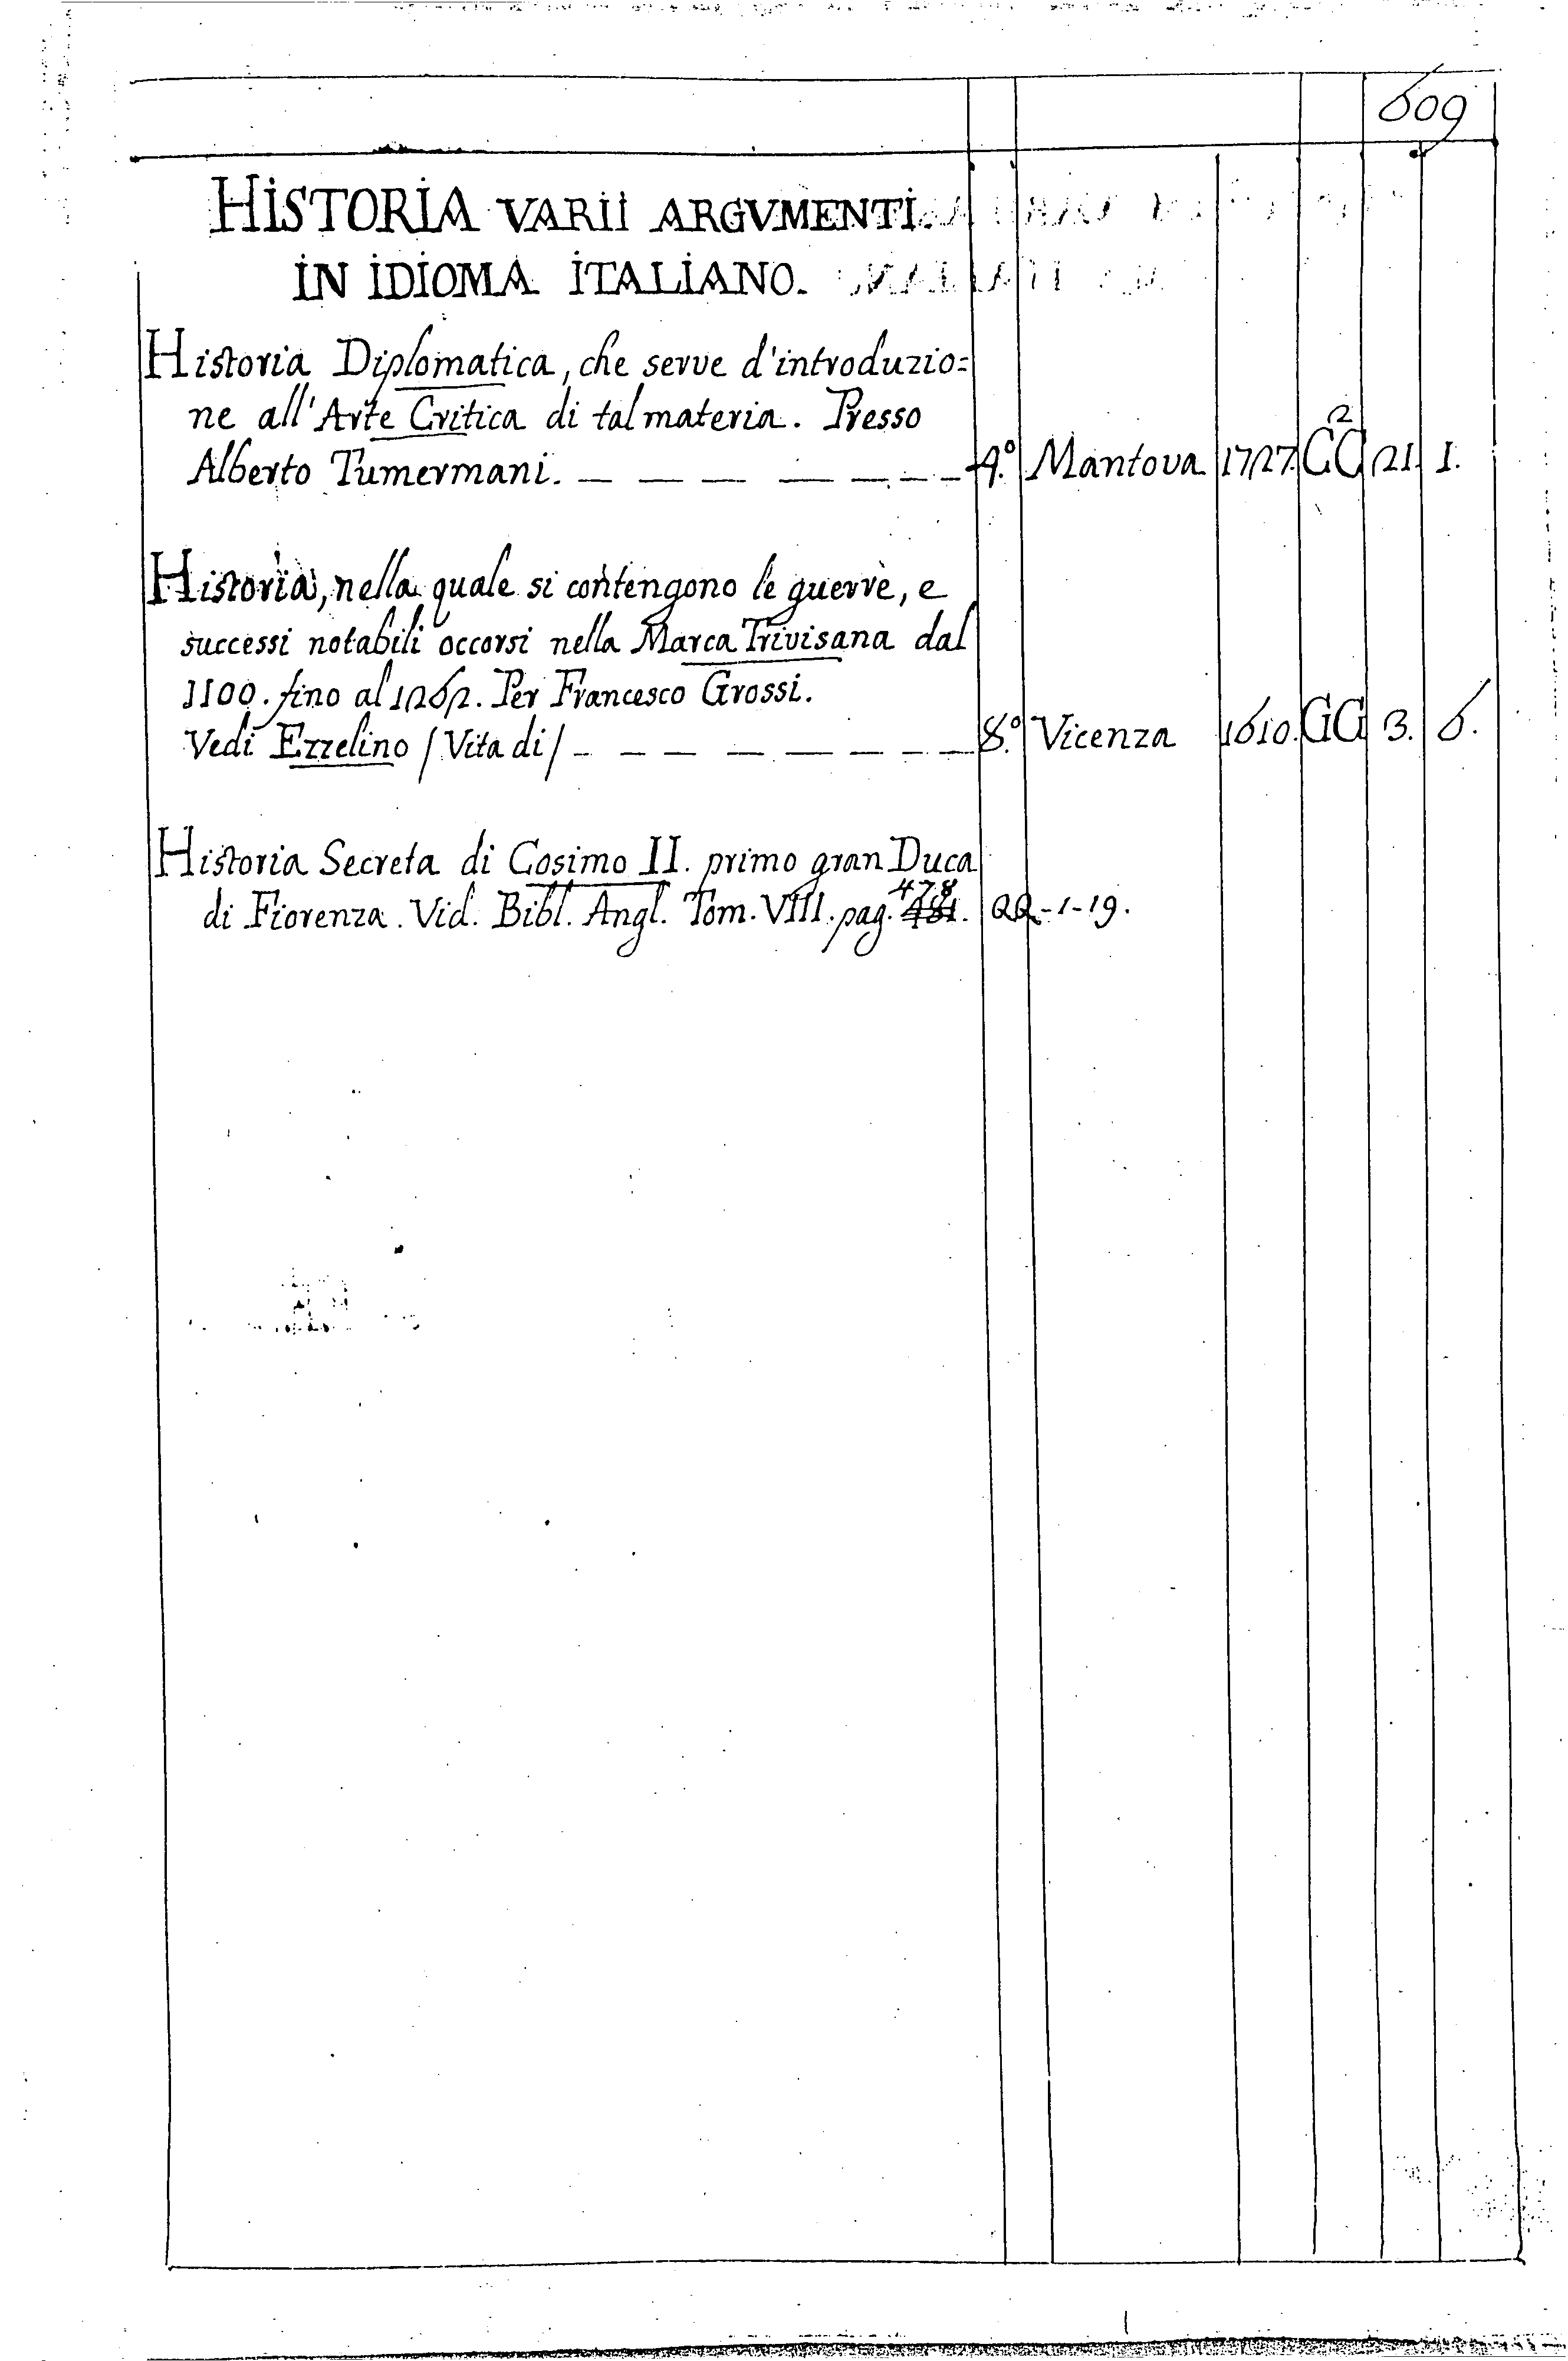 609
HISTORIA VARII ARGVMENTI
IN IDIOMA ITALIANO.
Historia Diplomatica, che serve d'introduzio=
ne all'Arte Critica di tal materia. Presso
Alberto Tumermani. — — — — — — — 4.º Mantova 1727. GG 2 21. 1.
Historia, nella quale si contengono le guerre, e
successi notabili occorsi nella Marca Trivisana dal
1100. fino al 1262. Per Francesco Grossi.
Vedi Ezzelino / Vita di / — — — — — — — — 8.º Vicenza 1610. GG 3. 6.
Historia Secreta di Cosimo II. primo gran Duca
di Fiorenza. Vid. Bibl. Angl. Tom. VIII. pag. 481. 478 QQ-1-19.